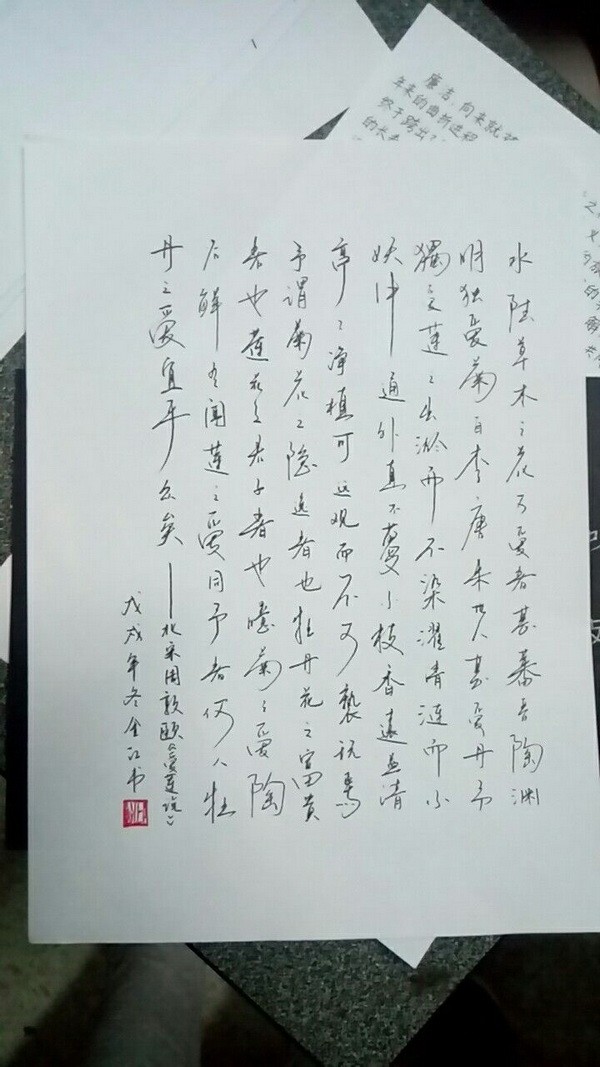 水陆草木之花可爱者甚蕃晋陶渊
明独爱菊自李唐来世人甚爱丹予
獨之莲之出淤而不染濯青涟而不
妖中通外直不蔓不枝香遠益清
亭亭净植可远观而不可褻玩焉
予谓菊花之隐逸者也牡丹花之富貴
者也莲花之君子者也噫菊之爱陶
后鲜有闻莲之爱同予者何人牡
丹之爱宜乎众矣——北宋周敦颐《爱莲说》
戊戌年冬金江书
廉洁,向来就
年来的曲折进程
终于跨出